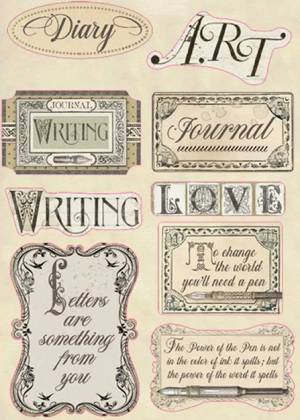 Diary
ART
JOURNAL
WRITING
Journal
WRITING
LOVE
To change
the world
you'll need a pen
Letters
are
something
from
you
The Power of the Pen is not
in the color of ink it spills; but
the power of the word it spells